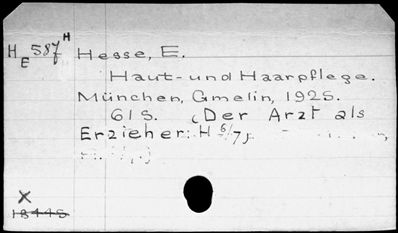 HE 587 H
Hesse, E.
Haut- und Haarpflege.
München, Gmelin, 1925.
61 S. (Der Arzt als
Erzieher: H 6/7)
X
18445